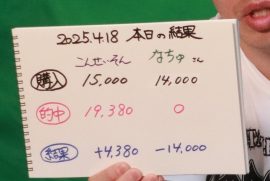 2025.4.18 本日の結果
こんせいそん なちゅさん
購入 15,000 14,000
的中 19,380 0
結果 +4,380 -14,000